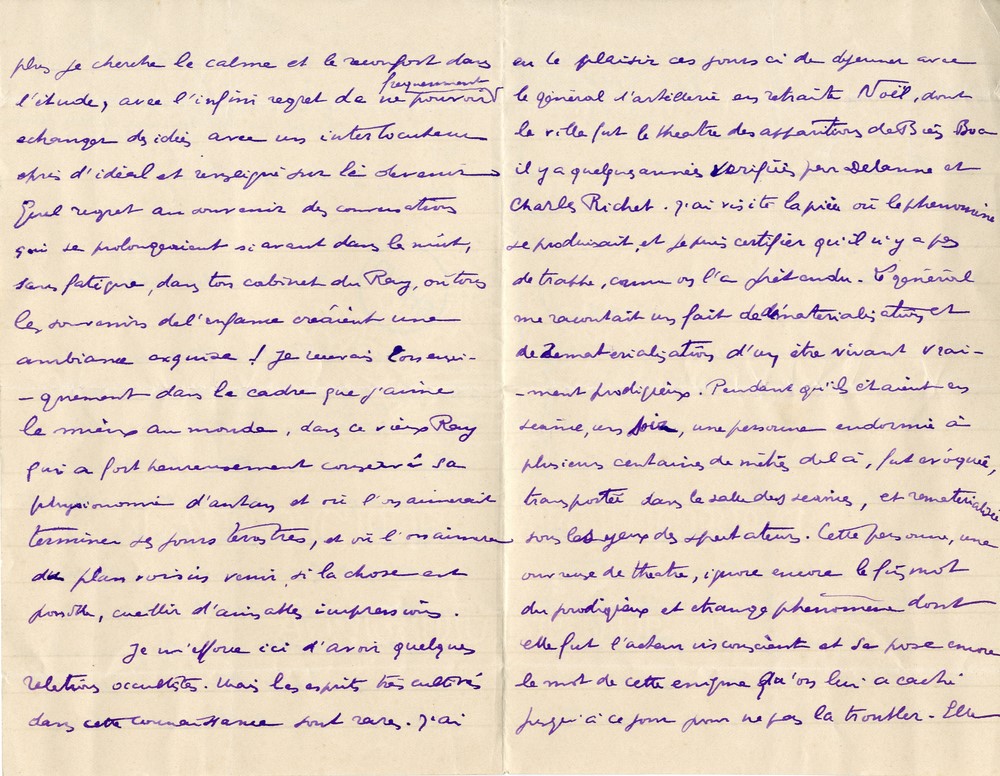 plus je cherche le calme et le reconfort dans
l'étude, avec l'infini regret de ne pouvoir frequemment
echanger des idées avec un interlocuteur
epris d'idéal et renseigné sur le devenir
Quel regret au souvenir des conversations
qui se prolongeaient si avant dans la nuit,
sans fatigue, dans ton cabinet du Ray, où tous
les souvenirs de l'enfance créaient une
ambiance exquise ! Je revenais
-quement dans le cadre que j'aime
le mieux au monde, dans ce vieux Ray
qui a fort heureusement conservé sa
physionomie d'antan et où l'on aimerait
terminer ses jours terrestres, et où l'on aimera
du plan voisin venir, si la chose est
possible, cueillir d'aimables impressions.
Je m'efforce ici d'avoir quelques
relations occultistes. Mais les esprits très cultivés
dans cette connaissance sont rares. J'ai
eu le plaisir ces jours ci de dejeuner avec
le général d'artillerie en retraite Noël, dont
la villa fut le theatre des apparitions de Bien Boa
il y a quelques années verifiées par Delanne et
Charles Richet. J'ai visité la pièce où le phenomène
se produisait, et je puis certifier qu'il n'y a pas
de trappe, comme on l'a prétendu. Le général
me racontait un fait de dématerialisation et
de rematerialisation d'un être vivant vrai-
-ment prodigieux. Pendant qu'ils étaient en
seance, un soir, une personne endormie à
plusieurs centaines de mètres de là, fut évoquée,
transportée dans la salle des seances, et rematerialisée
sous les yeux des spectateurs. Cette personne, une
ouvreuse de theatre, ignore encore le fin mot
du prodigieux et etrange phenomène dont
elle fut l'acteur inconscient et se pose encore
le mot de cette enigme qu'on lui a caché
jusqu'à ce jour pour ne pas la troubler. Elle